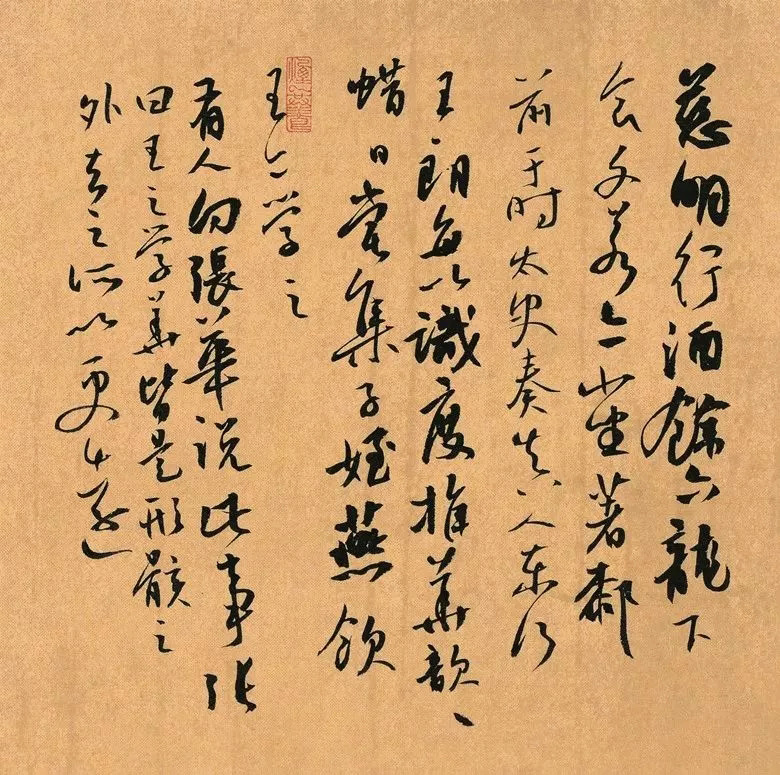 慈明行酒餘六龍下
食文若亦小坐著膝
前于时太史奏真人東行
王朗每以識度推華歆〻
蜡日嘗集子姪燕飲
王亦学之
有人向張華説此事張
曰王之学華皆是形骸之
外去之所以更遠